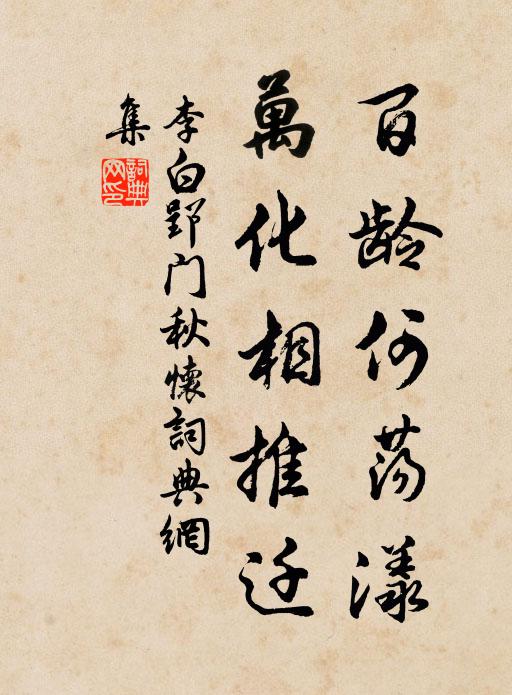 百龄何荡漾
萬化相推迁
李白郢门秋懷詞典網
集
詞典
网印